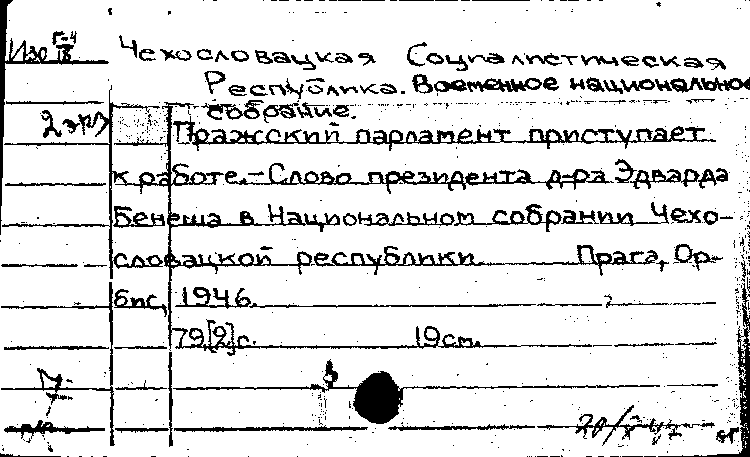 Изо Г-4
18
Чехословацкая Социалистическая
Республика. Временное национальное
собрание.
2 экз
Пражский парламент приступает
к работе.-Слово президента д-ра Эдварда
Бенеша в Национальном собрании Чехо-
словацкой республики. Прага, Ор-
бис, 1946.
79,[2]с. 19см.
20/X 47